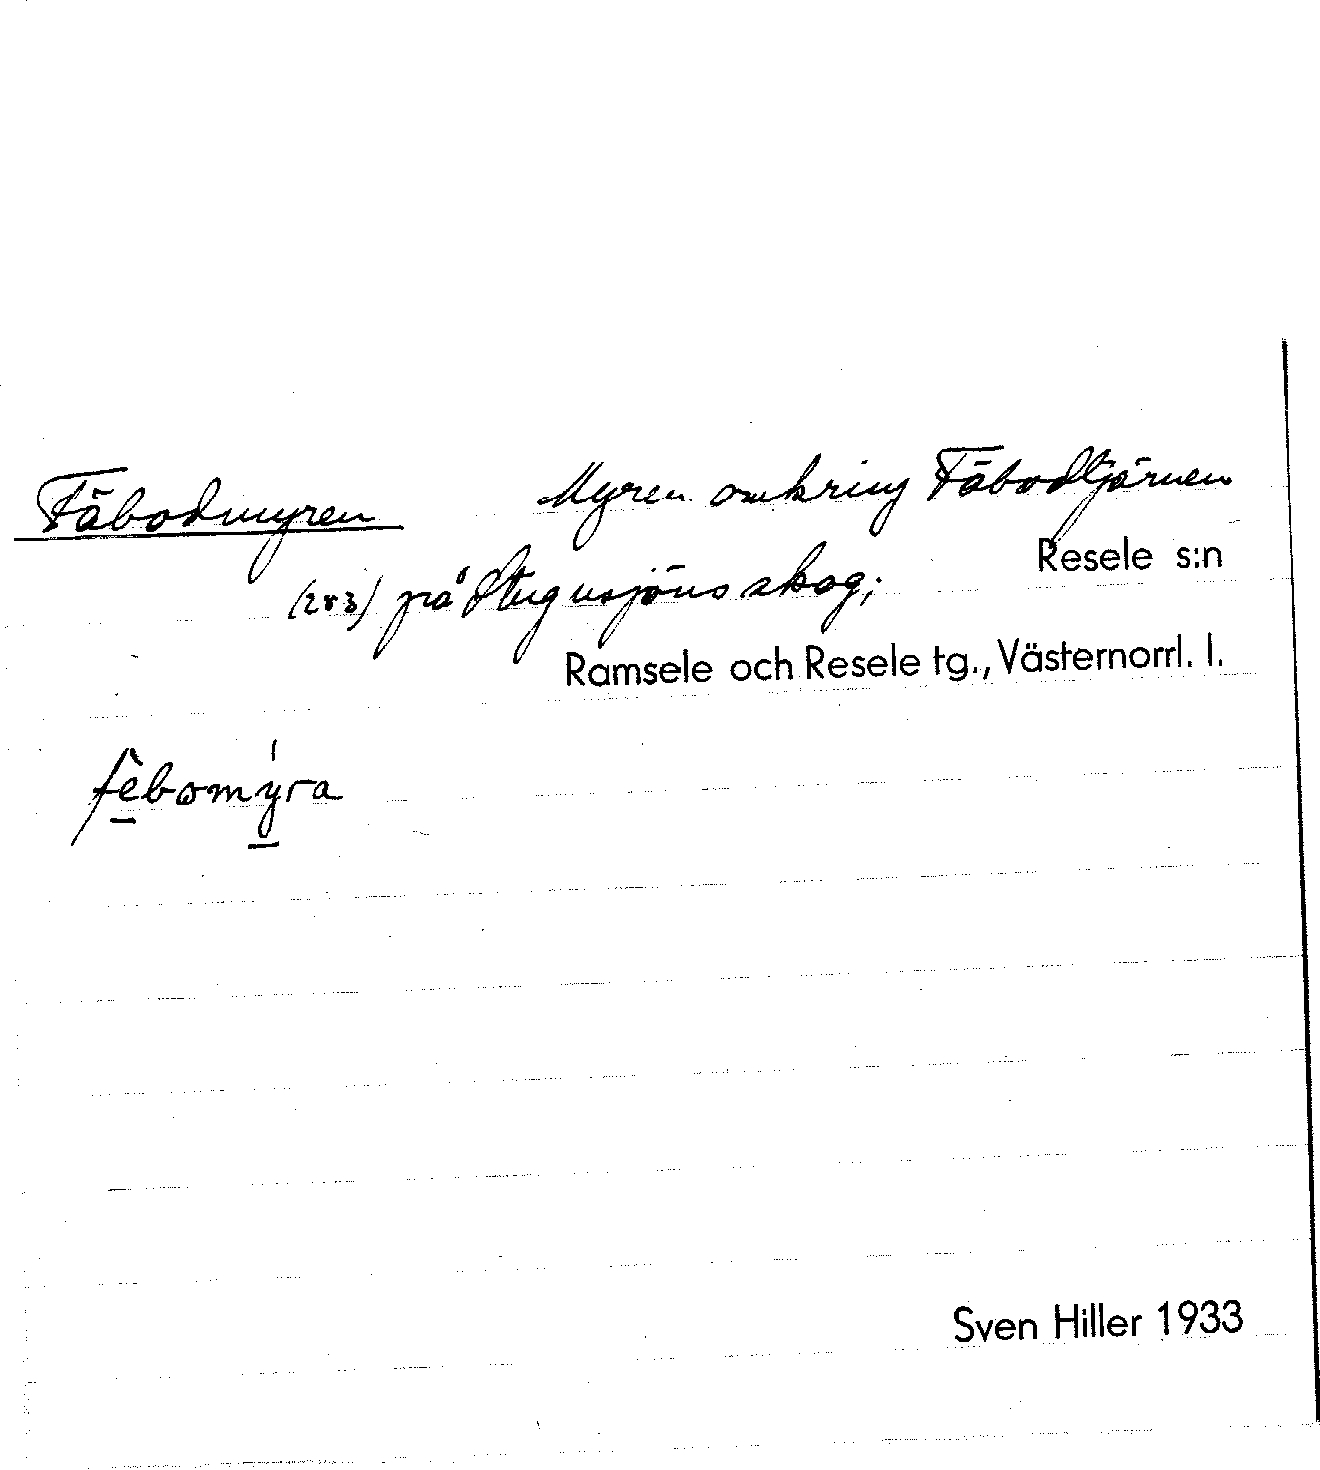 Fäbodmyren Myren omkring Fäbodtjärnen
Resele s:n
(283) på Stugusjöns skog;
Ramsele och Resele tg., Västernorrl. l.
fêbomýra
Sven Hiller 1933